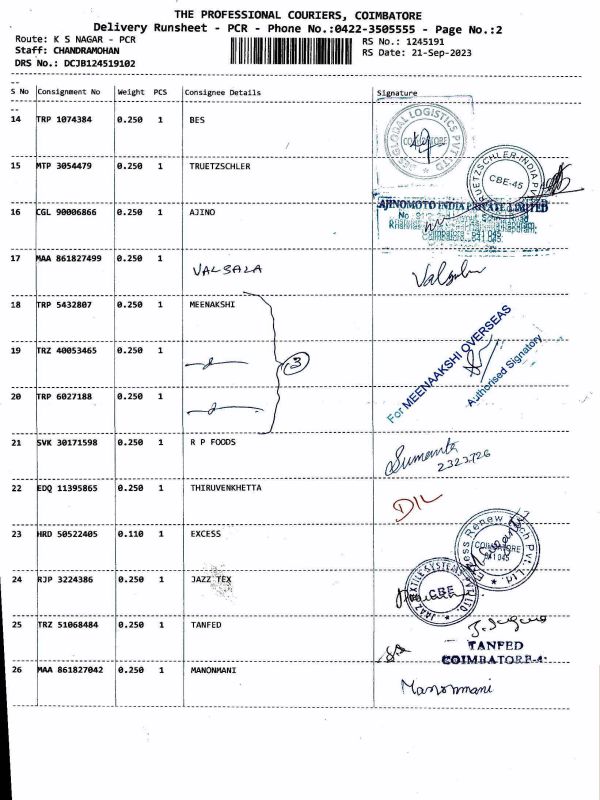 THE PROFESSIONAL COURIERS, COIMBATORE
Delivery Runsheet - PCR - Phone No.:0422-3505555 - Page No.:2
Route: K S NAGAR - PCR
RS No.: 1245191
Staff: CHANDRAMOHAN
RS Date: 21-Sep-2023
DRS No.: DCJB124519102
S No Consignment No Weight PCS Consignee Details Signature
14 TRP 1074384 0.250 1 BES
GLOBAL LOGISTICS PVT LTD
COIMBATORE
15 MTP 3054479 0.250 1 TRUETZSCHLER
TRUETZSCHLER INDIA PVT
CBE-45
16 CGL 90006866 0.250 1 AJINO
AJINOMOTO INDIA PRIVATE LIMITED
Coimbatore 641 045
17 MAA 861827499 0.250 1 VALSALA
18 TRP 5432807 0.250 1 MEENAKSHI
For MEENAAKSHI OVERSEAS
Authorised Signatory
19 TRZ 40053465 0.250 1
3
20 TRP 6027188 0.250 1
21 SVK 30171598 0.250 1 R P FOODS
2323726
22 EDQ 11395865 0.250 1 THIRUVENKHETTA
DIL
23 HRD 50522405 0.110 1 EXCESS
Renew Tech Pvt. Ltd.
COIMBATORE
641 045
24 RJP 3224386 0.250 1 JAZZ TEX
JAAZ TEXTILE SYSTEMS PVT LTD.
CBE
25 TRZ 51068484 0.250 1 TANFED
TANFED
COIMBATORE-4
26 MAA 861827042 0.250 1 MANONMANI
Manonmani